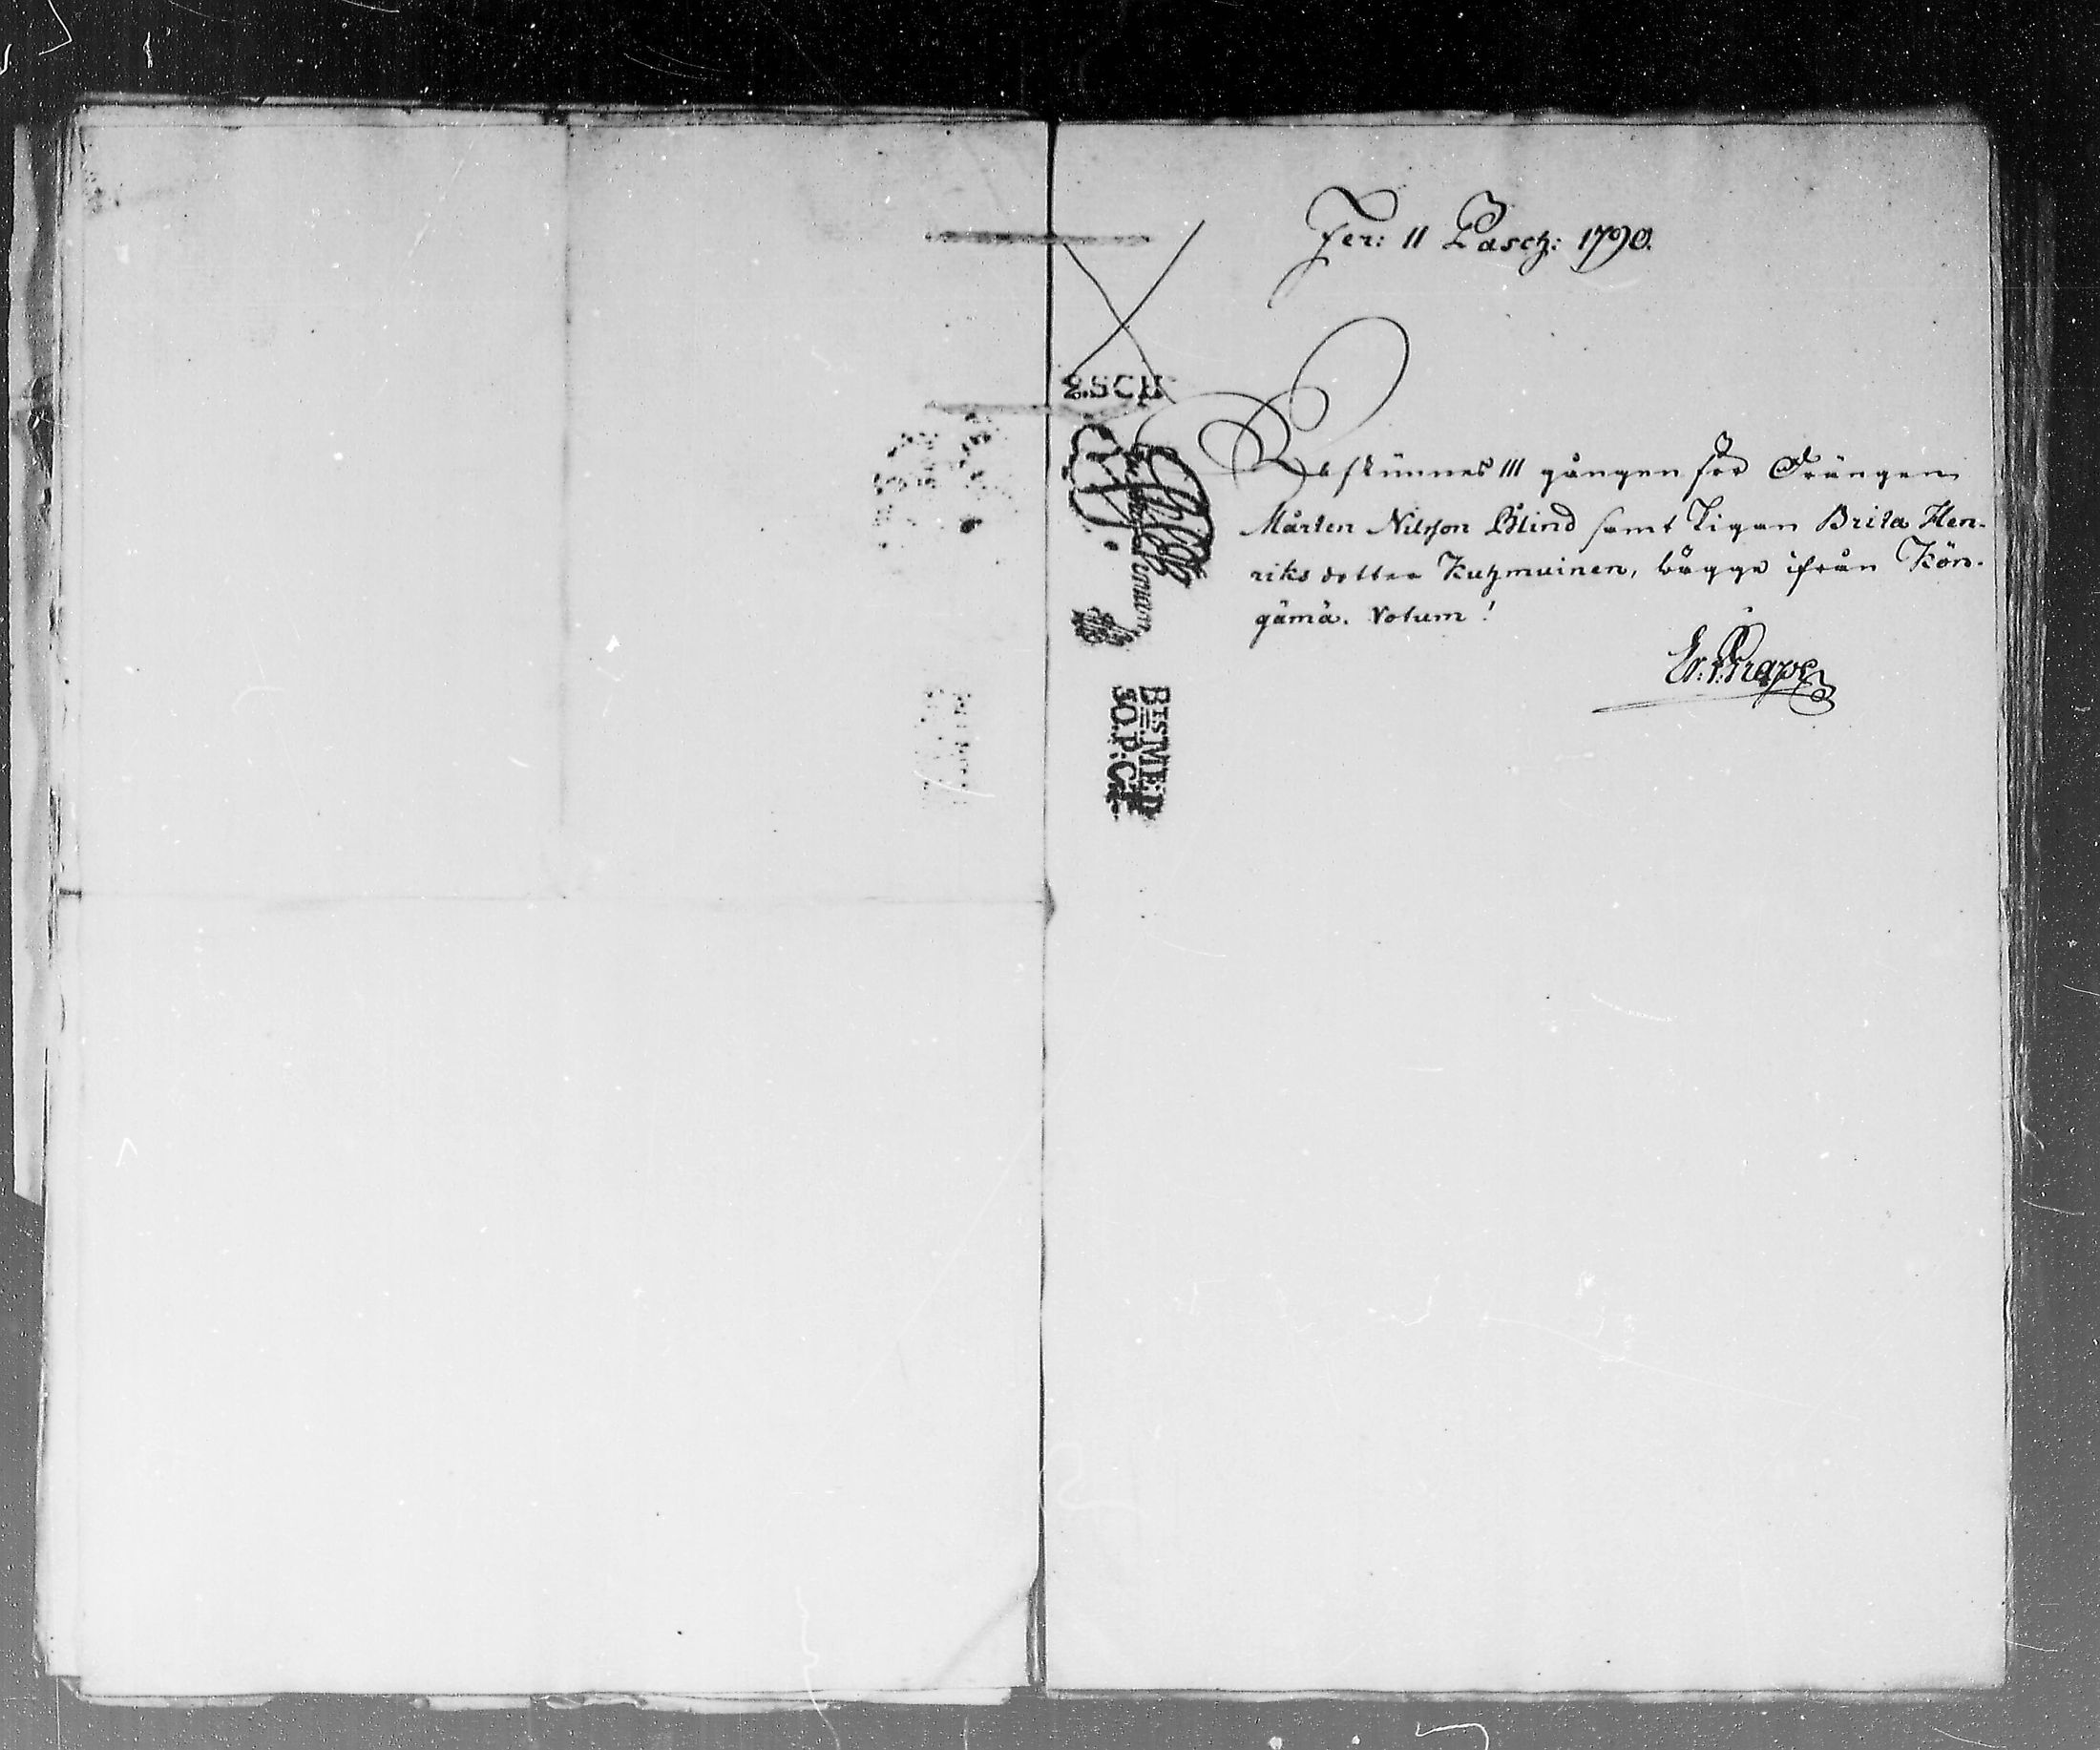 Fer: II Pasch: 1790.
Afkunnes III gången för Drängen
Mårten Nilsson Blind samt Pigan Brita Hen-
riksdotter Kutzmuinen, bägge ifrån Kön-
gämä. Votum!
Er. P. Grape
2.SCH
BTS MED
50.P:Ct